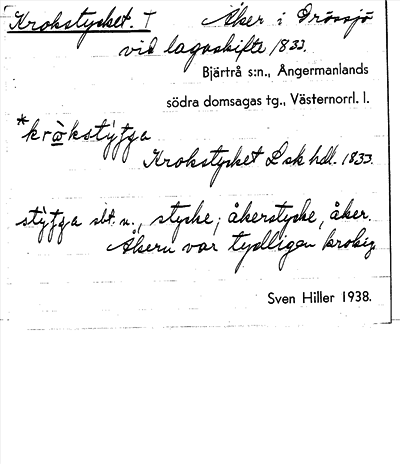 Krokstycket. T Åker i Orössjö
vid lagaskifte 1833.
Bjärtrå s:n., Ångermanlands
södra domsagas tg., Västernorrl. l.
*kròkstýʈʈa
Krokstycket L sk hdl. 1833.
stýʈʈa sbt. n., stycke; åkerstycke, åker.
Åkern var tydligen krokig
Sven Hiller 1938.